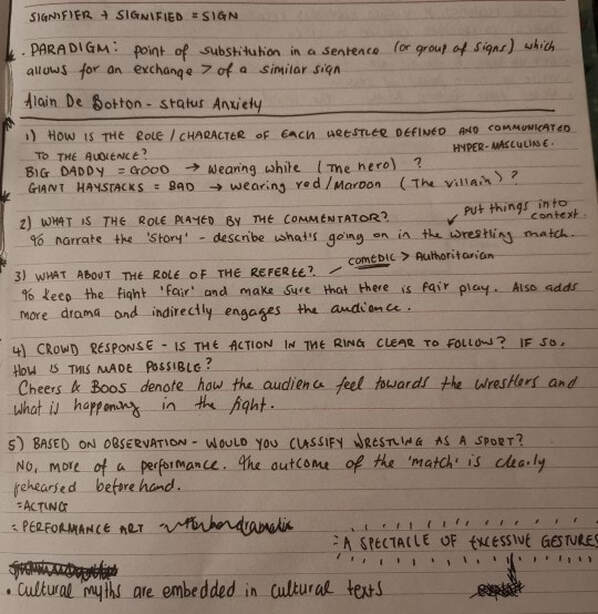 SIGNIFIER + SIGNIFIED = SIGN
• PARADIGM: point of substitution in a sentence (or group of signs) which
allows for an exchange > of a similar sign
Alain De Botton - Status Anxiety
1) HOW IS THE ROLE / CHARACTER OF EACH WRESTLER DEFINED AND COMMUNICATED
TO THE AUDIENCE?
HYPER-MASCULINE.
BIG DADDY = GOOD → wearing white (The hero) ?
GIANT HAYSTACKS = BAD → wearing red / Maroon (The villain) ?
2) WHAT IS THE ROLE PLAYED BY THE COMMENTATOR?
put things into
context.
narrate the 'story' - describe what's going on in the wrestling match.
3) WHAT ABOUT THE ROLE OF THE REFEREE? - COMEDIC > Authoritarian
keep the fight 'fair' and make sure that there is fair play. Also adds
more drama and indirectly engages the audience.
4) CROWD RESPONSE - IS THE ACTION IN THE RING CLEAR TO FOLLOW? IF SO,
HOW IS THIS MADE POSSIBLE?
Cheers & Boos denote how the audience feel towards the wrestlers and
what is happening in the fight.
5) BASED ON OBSERVATION - WOULD YOU CLASSIFY WRESTLING AS A SPORT?
NO, more of a performance. The outcome of the 'match' is clearly
rehearsed beforehand.
= ACTING
= PERFORMANCE ART
= A SPECTACLE OF EXCESSIVE GESTURES
• Cultural myths are embedded in cultural texts